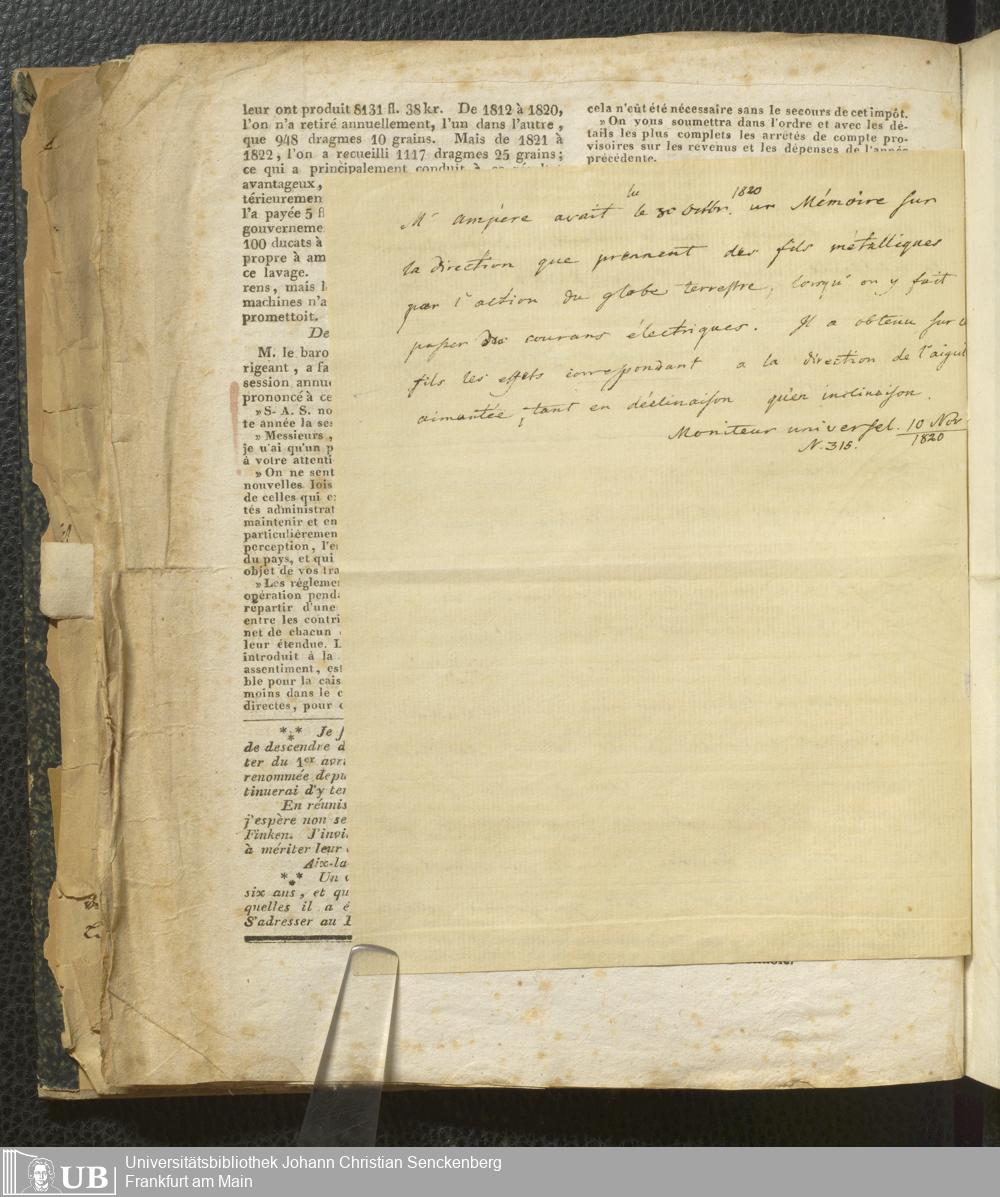 leur ont produit 8131 fl. 38 kr. De 1812 à 1820,
l'on n'a retiré annuellement, l'un dans l'autre,
que 948 dragmes 10 grains. Mais de 1821 à
1822, l'on a recueilli 1117 dragmes 25 grains;
ce qui a principalement conduit à ce
avantageux,
térieuremen
l'a payée 5 fl
gouverneme
100 ducats à
propre à am
ce lavage.
rens, mais l
machines n'a
promettoit.
De
M. le baro
rigeant, a fa
session annu
prononcé à ce
»S. A. S. no
te année la se
» Messieurs,
je n'ai qu'un p
à votre attenti
» On ne sent
nouvelles lois
de celles qui e
tés administrat
maintenir et en
particulièremen
perception, l'e
du pays, et qui
objet de vos tra
» Les régleme
opération pend
répartir d'une
entre les contri
net de chacun
leur étendue. L
introduit à la
assentiment, est
ble pour la cais
moins dans le c
directes, pour
*** Je f
de descendre d
ter du 1er avri
renommée depu
tinuerai d'y ter
En réunis
j'espère non se
Finken. J'invi
à mériter leur
Aix-la
*** Un
six ans, et qu
quelles il a é
S'adresser au
cela n'eût été nécessaire sans le secours de cet impôt.
» On vous soumettra dans l'ordre et avec les dé-
tails les plus complets les arrêtés de compte pro-
visoires sur les revenus et les dépenses de l'année
précédente.
lu 1820
Mr Ampère avait le 30 Octbr. un Mémoire sur
la direction que prennent des fils métalliques
par l'action du globe terrestre, lorsqu'on y fait
passer des courans électriques. Il a obtenu sur
fils les effets correspondant a la direction de l'aiguil
aimantée, tant en déclinaison qu'en inclinaison.
Moniteur universel. 10 Nov
N. 315. 1820
UB
Universitätsbibliothek Johann Christian Senckenberg
Frankfurt am Main